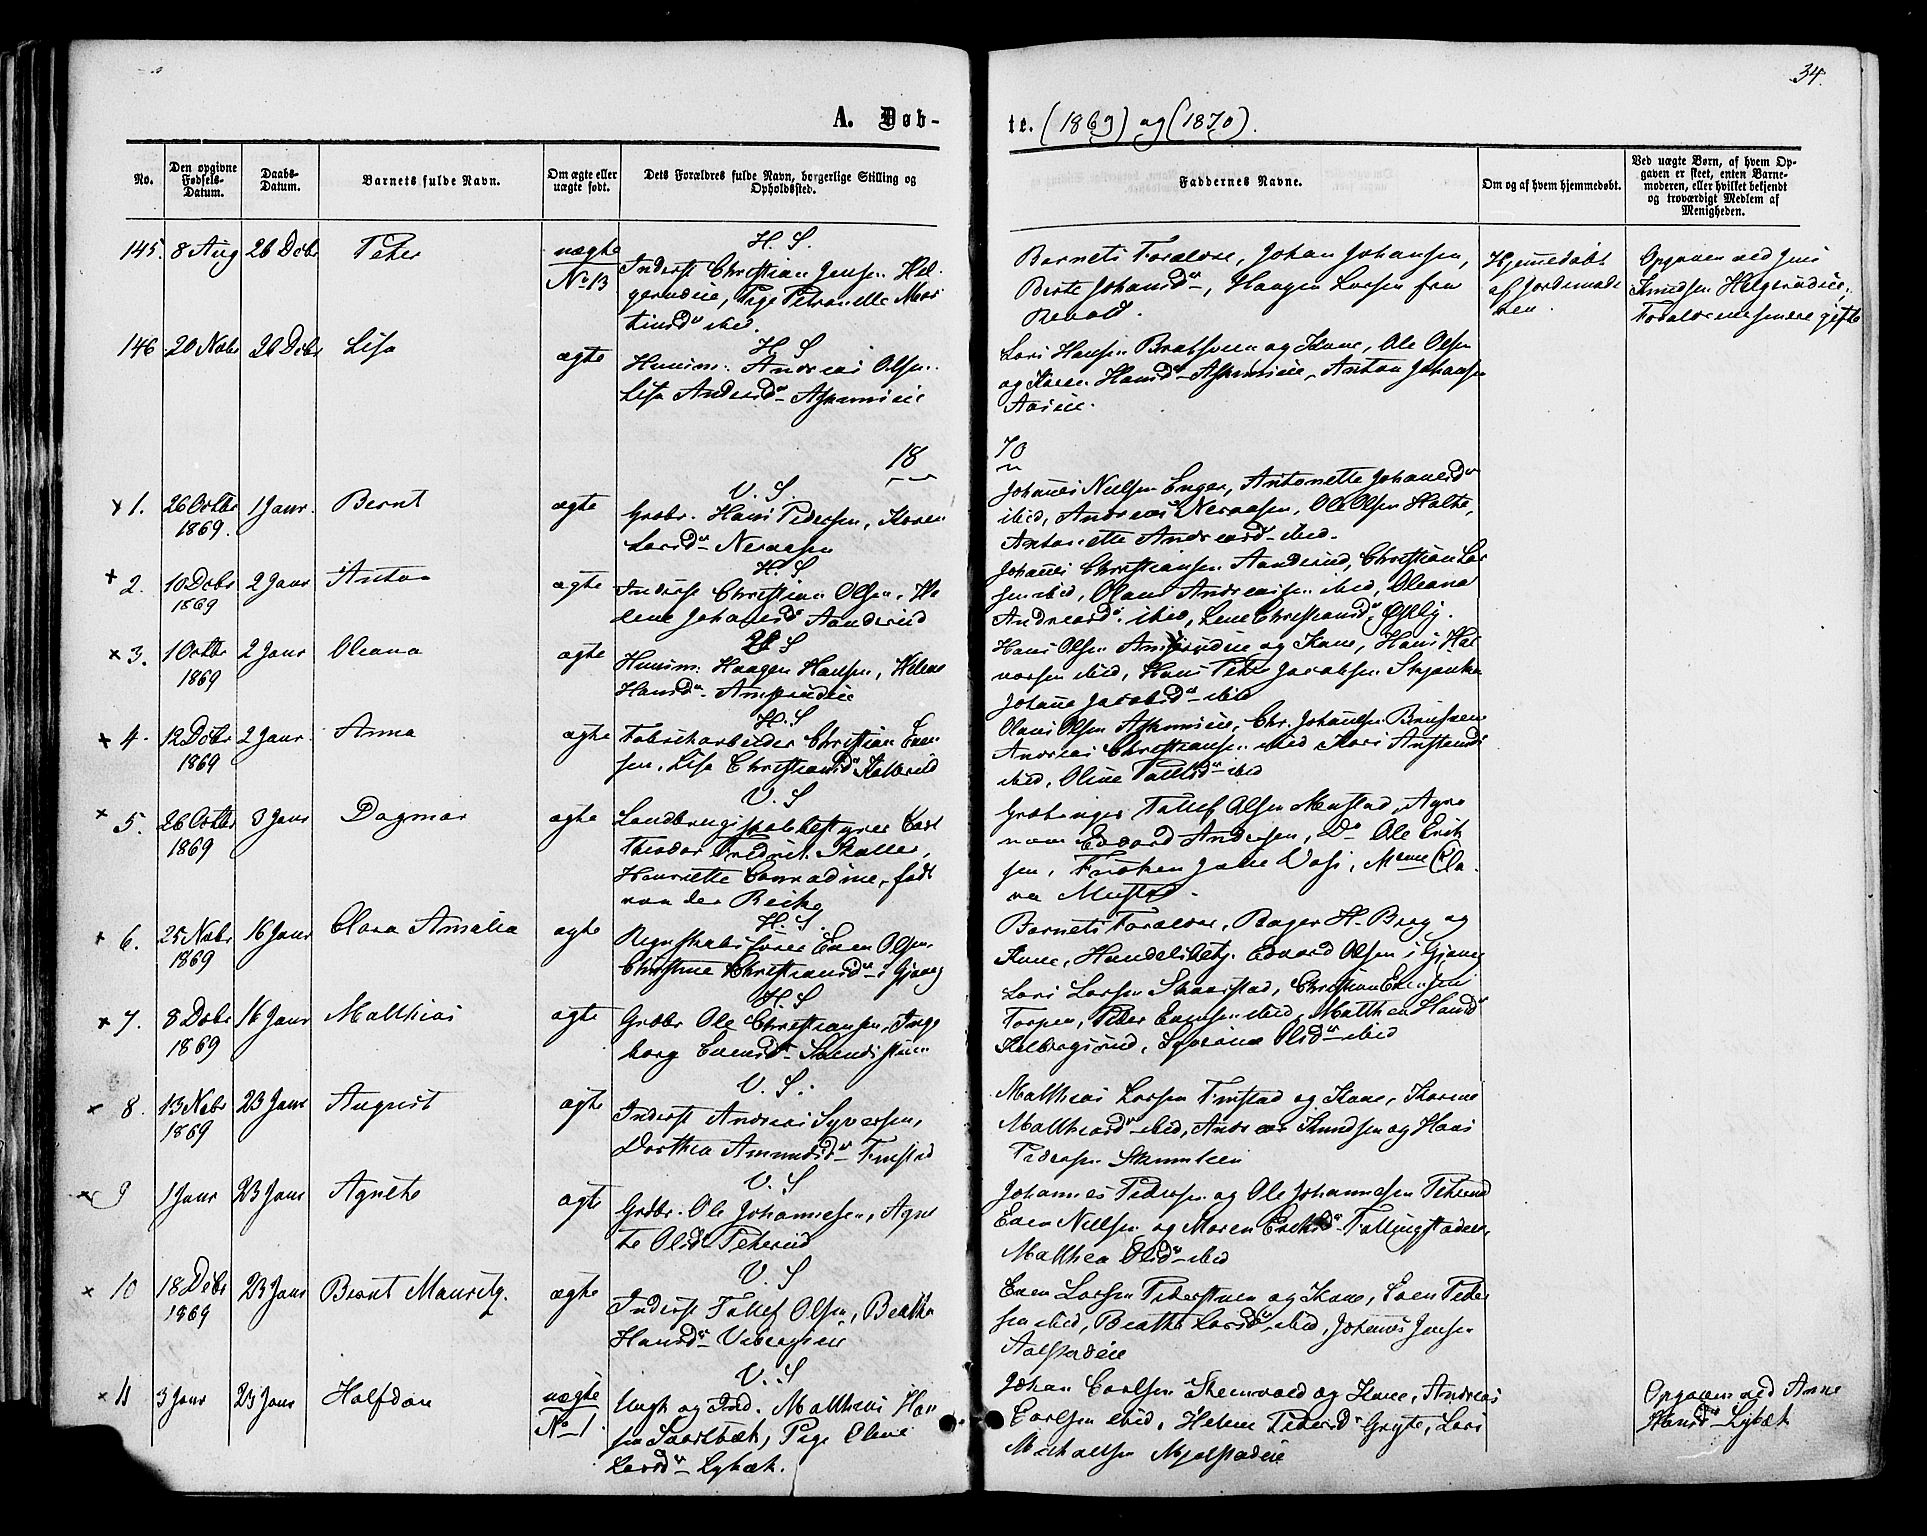 34.
A. Døb-
te. (1869) og (1870).
No.
Den opgivne Fødsels-Datum.
Daabs-Datum.
Barnets fulde Navn.
Om ægte eller uægte født.
Dets Forældres fulde Navn, borgerlige Stilling og Opholdssted.
Faddernes Navne.
Om og af hvem hjemmedøbt.
Ved uægte Børn, af hvem Op-
gaven er skeet, enten Barne-
moderen, eller hvilket bekjendt
og troværdigt Medlem af
Menigheden.
145. 8 Aug 26 Decbr Peter uægte No 13
H. S.
Inderst Christian Jensen Hel-
gerudeie, Pige Petronelle Mar
tinsdr ibid.
Barnets Forældre, Johan Johansen,
Berte Johansdr, Haagen Larsen fra
Hjemmedøbt
af Jordemode
ren.
Opgaven ved Jens
Knudsen Helgerudeie,
Forældrene senere gifte
146 20 Nobr 26 Decbr Lisa ægte
H. S
Huusm. Andreas Olsen.
Lisa Andersdr
Lars Hansen og Kone, Ole Olsen
og Karen Hansdr Anton Johansen
Aaseie.
18
70
x 1. 26 Octbr 1869. 1 Janr. Bernt ægte
V. S.
Grdbr. Hans Pedersen, Karen
Larsdr
Johannes Nielsen Enger, Antonette Johansdr
ibid, Andreas Ole Olsen Holte,
Antonette Andreasdr ibid.
+ 2. 10 Decbr 1869 2 Janr Anton ægte
H. S
Inderst Christian Olsen, He
lene Johansdr Aanderud
Johannes Christiansen Aanderud, Christian Lar
sen ibid, Olaus Andreassen ibid, Oleana
Andreasdr. ibid, Lene Christiansdr, Østby.
x 3. 1 Octbr 1869 2 Janr Oleana ægte
H. S
Huusm. Haagen Hansen, Helene
Hansdr.
Hans Olsen og Kone, Hans Hal
vorsen ibid, Hans Peter Jacobsen
Johanne Jacobsdr ibid
x 4. 12 Decbr 1869 2 Janr. Anna ægte
H. S
Fabrikarbeider Christian Even
sen, Lisa Christiansdr
Olaus Olsen Chr. Johannesen
Andreas Christiansen ibid
ibid, Oline ibid
x 5. 26 Octbr 1869 3 Janr Dagmar ægte
V. S
Landbrugsskolebestyrer Carl
Theodor Fredrik
Henriette Conradine, født
von der
Grdbruger Tollef Olsen Mustad, Agro
nom Edvard Andersen, Do Ole Erik
sen, Frøken Jane Vasi, Mme Cla
ra Mustad.
x 6. 25 Nobr 1869 16 Janr Clara Amalia ægte
H. S.
Regnskabsfører Even Olsen
Christine Christiansdr i Gjøvig
Barnets Forældre, Bager H. Berg og
Kone, Handelsbetj. Edvard Olsen i Gjøvig
x 7. 8 Decbr 1869 16 Janr Matthias ægte
H. S
Grdbr Ole Christiansen, Inge
borg Evensdr
Lars Larsen Skaarstad, Christian Evensen
Torpen, Peter Evensen ibid, Matthea Hansdr
Olsdr ibid
x 8. 13 Nobr 1869 23 Janr August ægte
V. S.
Inderst Andreas Syversen,
Dorthea Amundsdr Finstad
Matthias Larsen Finstad og Kone, Karene
Matthiasdr ibid, Andreas Knudsen og Hans
Pedersen
x 9 1 Janr 23 Janr Agnethe ægte
V. S
Grdbr. Ole Johannesen, Agne
te Olsdr Peterud
Johannes Pedersen og Ole Johannesen Peterud
Even Nielsen og Maren Eriksdr
Matthea Olsdr ibid
x 10 18 Decbr 1869 23 Janr Bernt Mauritz. ægte
V. S
Inderst Tollef Olsen, Beathe
Hansdr
Even Larsen og Kone, Even Peder
sen ibid, Beathe Larsdr ibid, Johannes Jensen
x 11 3 Janr 23 Janr Halfdan uægte No 1.
V. S
Ungk og Ind. Matthias Han
sen Pige Oline
Larsdr Lybæk.
Johan Carlsen og Kone, Andreas
Carlsen ibid, Helene Pedersdr Lars
Opgaven ved Anne
Hansdr Lybæk